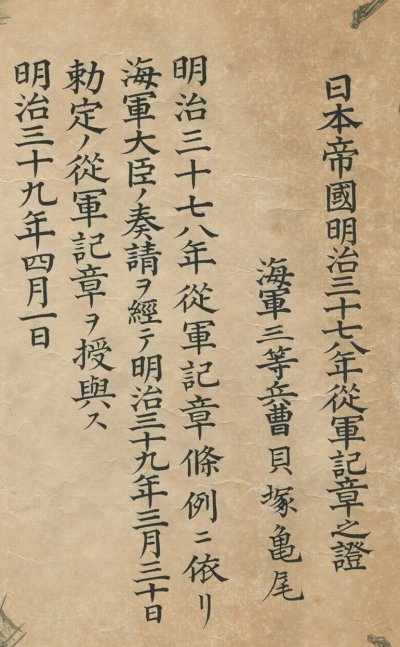 日本帝國明治三十七八年從軍記章之證
海軍三等兵曹貝塚亀尾
明治三十七八年從軍記章條例ニ依リ
海軍大臣ノ奏請ヲ經テ明治三十九年三月三十日
勅定ノ從軍記章ヲ授與ス
明治三十九年四月一日